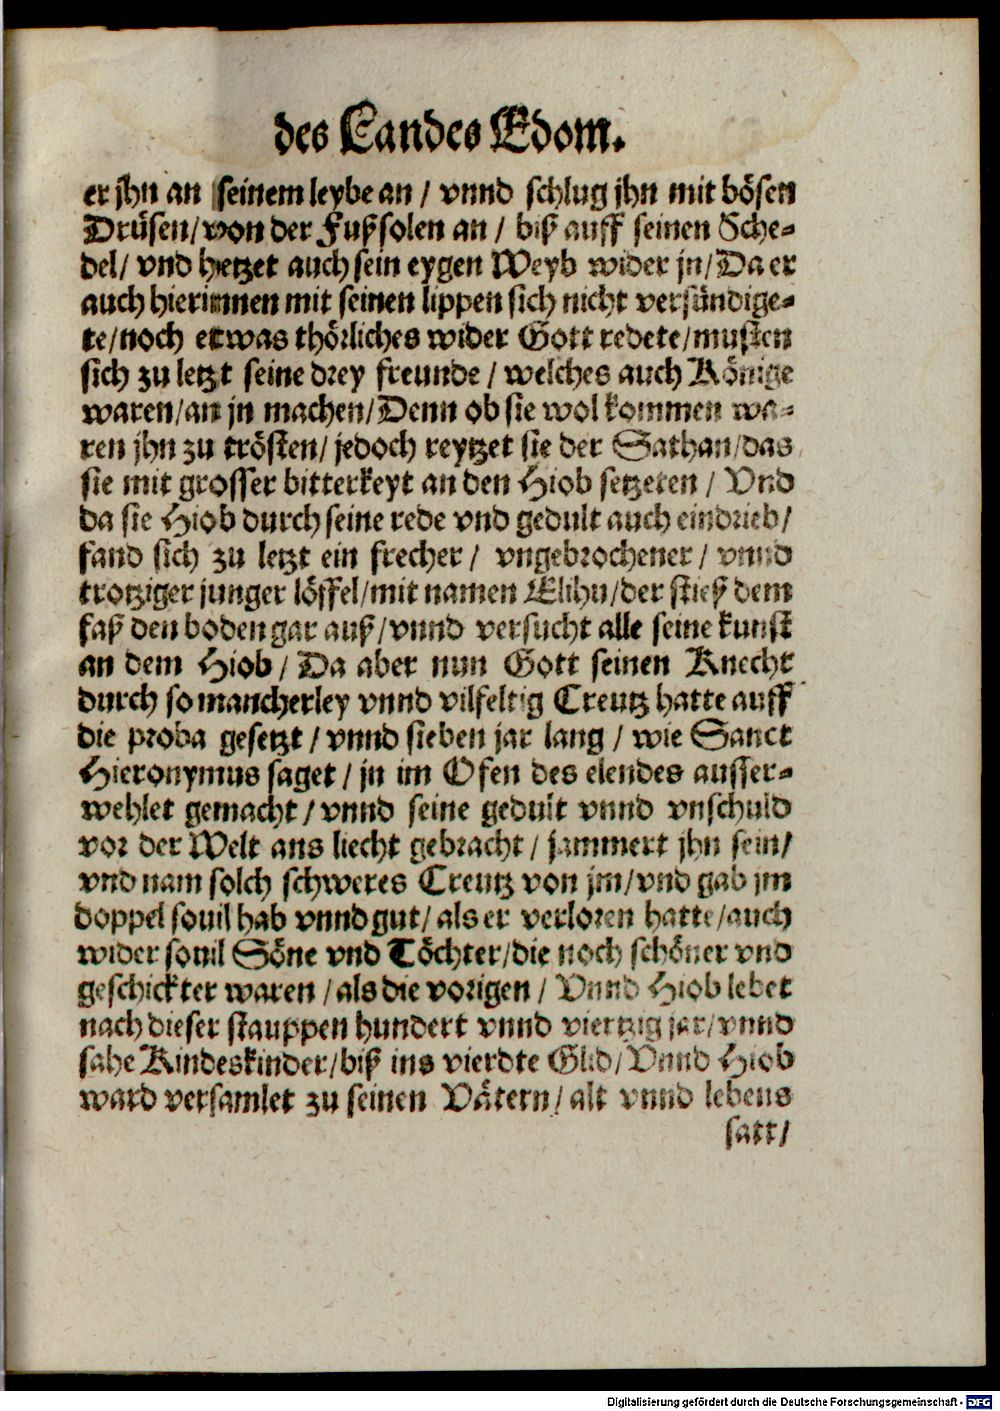 des Landes Edom.
er jhn an seinem leybe an / vnnd schlug jhn mit bösen
Drüsen / von der Fußsolen an / biß auff seinen Sche⸗
del / vnd hetzet auch sein eygen Weyb wider jn / Da er
auch hierinnen mit seinen lippen sich nicht versündige⸗
te / noch etwas thörliches wider Gott redete / musten
sich zu letzt seine drey freunde / welches auch Könige
waren / an jn machen / Denn ob sie wol kommen wa⸗
ren jhn zu trösten / jedoch reytzet sie der Sathan / das
sie mit grosser bitterkeyt an den Hiob setzeten / Vnd
da sie Hiob durch seine rede vnd gedult auch eindrieb /
fand sich zu letzt ein frecher / vngebrochener / vnnd
trotziger junger löffel / mit namen Elihu / der stieß dem
faß den boden gar auß / vnnd versucht alle seine kunst
an dem Hiob / Da aber nun Gott seinen Knecht
durch so mancherley vnnd vilfeltig Creutz hatte auff
die proba gesetzt / vnnd sieben jar lang / wie Sanct
Hieronymus saget / jn im Ofen des elendes ausser⸗
wehlet gemacht / vnnd seine gedult vnnd vnschuld
vor der Welt ans liecht gebracht / jammert jhn sein /
vnd nam solch schweres Creutz von jm / vnd gab jm
doppel souil hab vnnd gut / als er verloren hatte / auch
wider souil Söne vnd Töchter / die noch schöner vnd
geschickter waren / als die vorigen / Vnnd Hiob lebet
nach dieser stauppen hundert vnnd viertzig jar / vnnd
sahe Kindeskinder / biß ins vierdte Glid / Vnnd Hiob
ward versamlet zu seinen Vätern / alt vnnd lebens
satt /
Digitalisierung gefördert durch die Deutsche Forschungsgemeinschaft - DFG